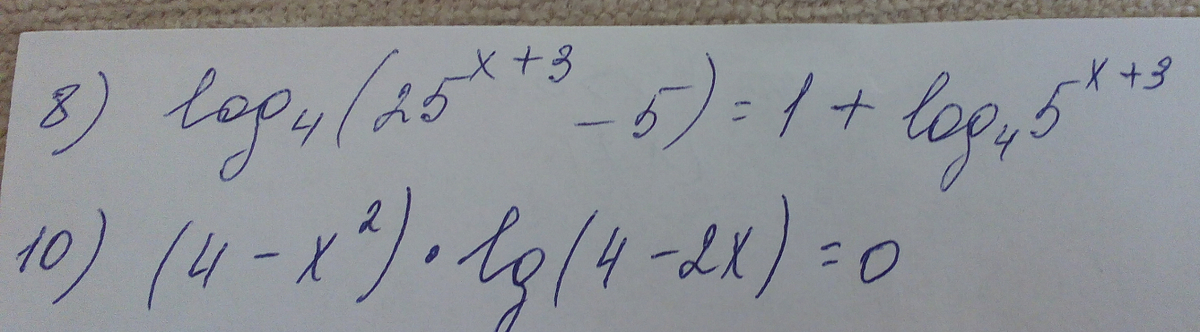 8) log₄(25^(x+3) − 5) = 1 + log₄5^(x+3)
10) (4 − x²) · lg(4 − 2x) = 0